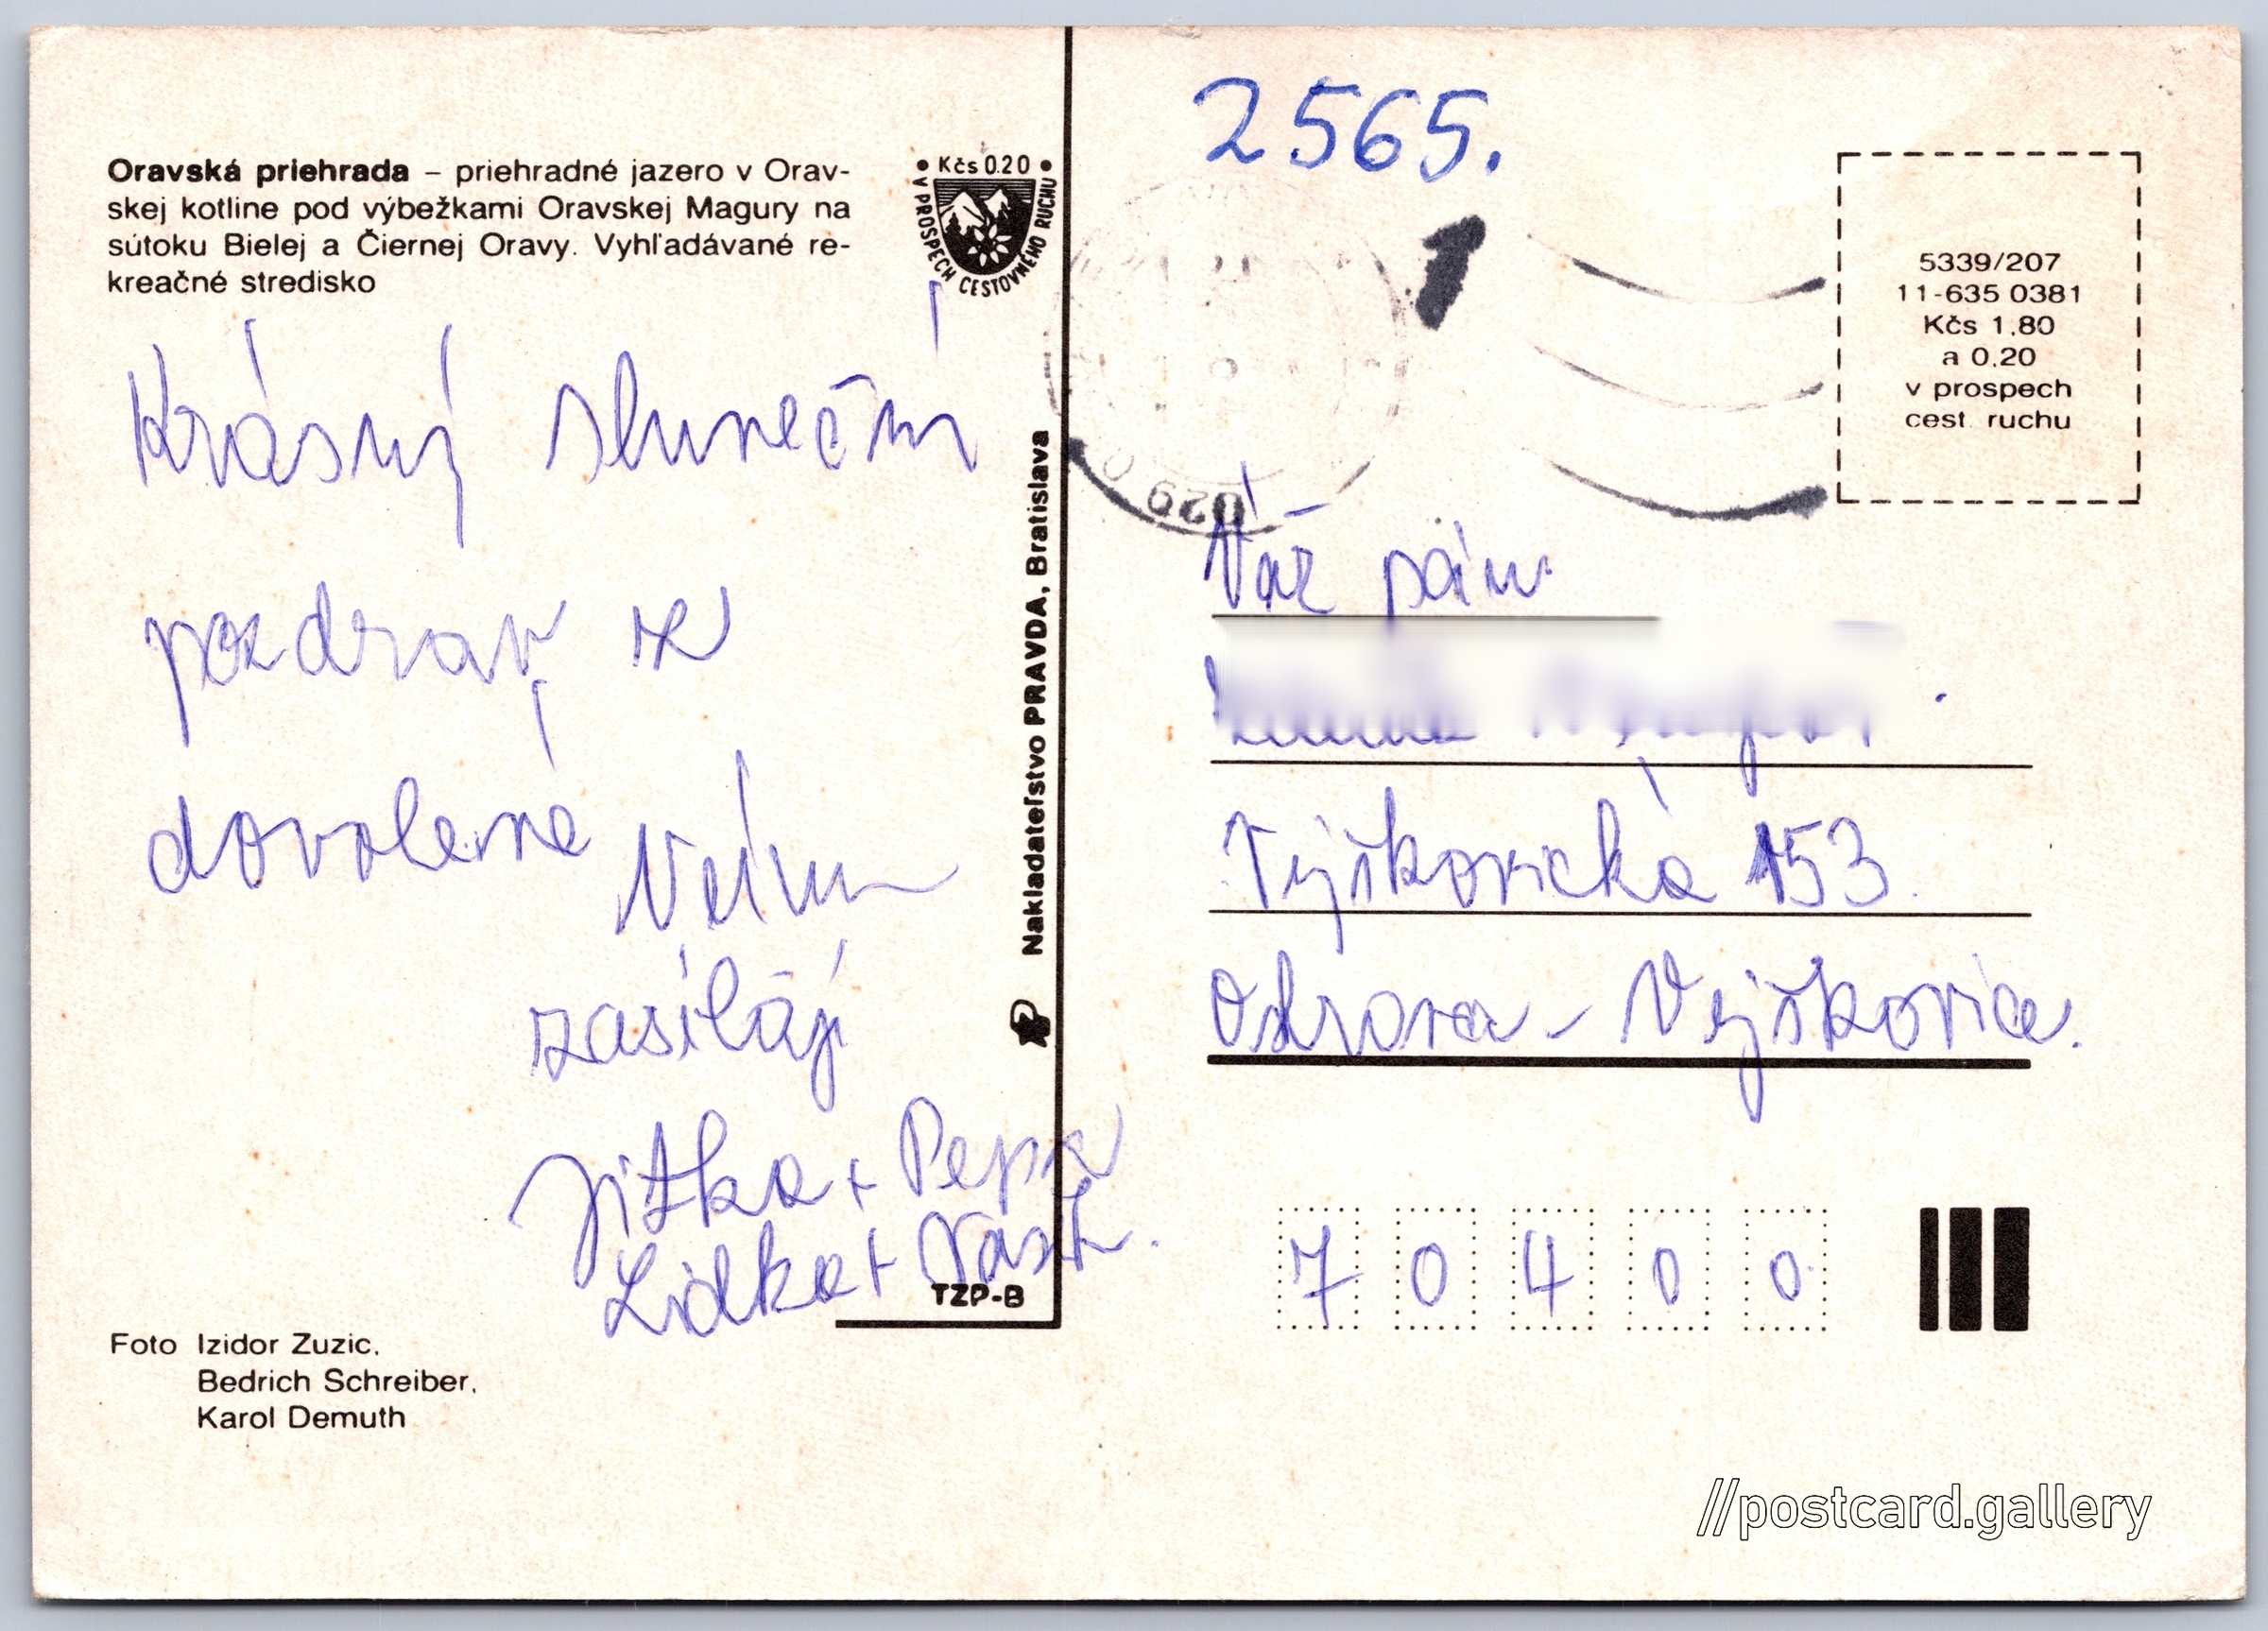 2565.
Oravská priehrada – priehradné jazero v Orav-
skej kotline pod výbežkami Oravskej Magury na
sútoku Bielej a Čiernej Oravy. Vyhľadávané re-
kreačné stredisko
• Kčs 0.20 •
V PROSPECH CESTOVNÉHO RUCHU
5339/207
11-635 0381
Kčs 1,80
a 0,20
v prospech
cest. ruchu
029 0
Krásný sluneční
pozdrav z
dovolené Vám
zasílají
Jitka + Pepa
Lidka + Vast.
Nakladateľstvo PRAVDA, Bratislava
TZP-B
Foto Izidor Zuzic,
Bedrich Schreiber,
Karol Demuth
Váž pán
Výškovická 153
Ostrava - Výškovice.
7 0 4 0 0
//postcard.gallery